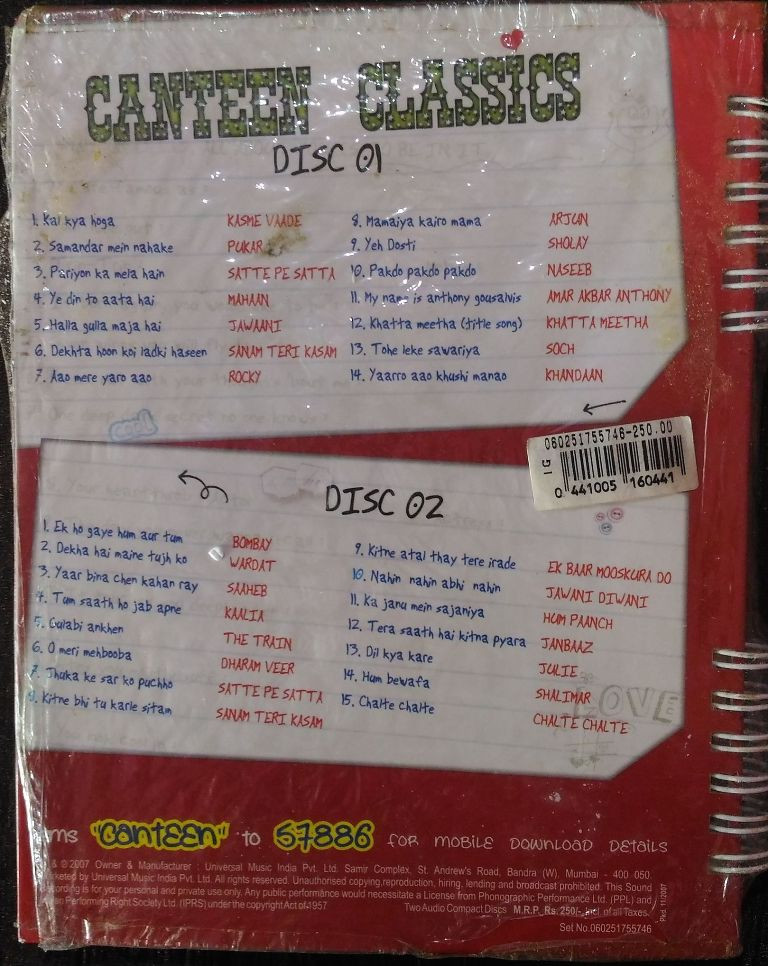 CANTEEN CLASSICS
DISC 01
1. Kal kya hoga KASME VAADE
2. Samandar mein nahake PUKAR
3. Pariyon ka mela hain SATTE PE SATTA
4. Ye din to aata hai MAHAAN
5. Halla gulla maja hai JAWAANI
6. Dekhta hoon koi ladki haseen SANAM TERI KASAM
7. Aao mere yaro aao ROCKY
8. Mamaiya kairo mama ARJUN
9. Yeh Dosti SHOLAY
10. Pakdo pakdo pakdo NASEEB
11. My name is anthony gousalvis AMAR AKBAR ANTHONY
12. Khatta meetha (title song) KHATTA MEETHA
13. Tohe leke sawariya SOCH
14. Yaarro aao khushi manao KHANDAAN
cool
060251755746-250.00
IG
0 441005 160441
DISC 02
1. Ek ho gaye hum aur tum BOMBAY
2. Dekha hai maine tujh ko WARDAT
3. Yaar bina chen kahan ray SAAHEB
4. Tum saath ho jab apne KAALIA
5. Gulabi ankhen THE TRAIN
6. O meri mehbooba DHARAM VEER
7. Jhuka ke sar ko puchho SATTE PE SATTA
8. Kitne bhi tu karle sitam SANAM TERI KASAM
9. Kitne atal thay tere irade EK BAAR MOOSKURA DO
10. Nahin nahin abhi nahin JAWANI DIWANI
11. Ka janu mein sajaniya HUM PAANCH
12. Tera saath hai kitna pyara JANBAAZ
13. Dil kya kare JULIE
14. Hum bewafa SHALIMAR
15. Chalte chalte CHALTE CHALTE
LOVE
sms "CANTEEN" to 57886 FOR MOBILE DOWNLOAD DETAILS
& © 2007 Owner & Manufacturer : Universal Music India Pvt. Ltd. Samir Complex, St. Andrew's Road, Bandra (W), Mumbai - 400 050.
Marketed by Universal Music India Pvt. Ltd. All rights reserved. Unauthorised copying,reproduction, hiring, lending and broadcast prohibited. This Sound
Recording is for your personal and private use only. Any public performance would necessitate a License from Phonographic Performance Ltd. (PPL) and
Indian Performing Right Society Ltd. (IPRS) under the copyright Act of 1957
Two Audio Compact Discs M.R.P. Rs. 250/- Incl of all Taxes.
Set No.060251755746
Pkd. 11/2007